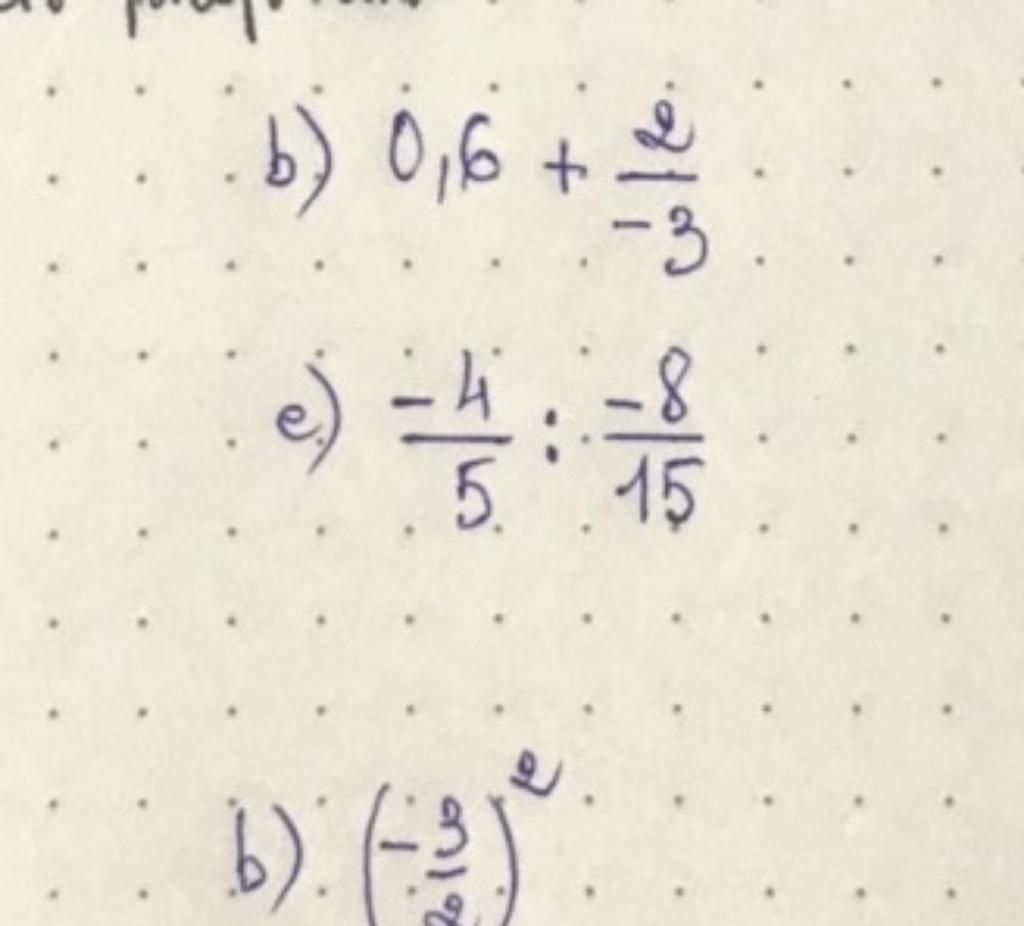 b) 0,6 + 2/-3
e) -4/5 : -8/15
b) (-3/2)²